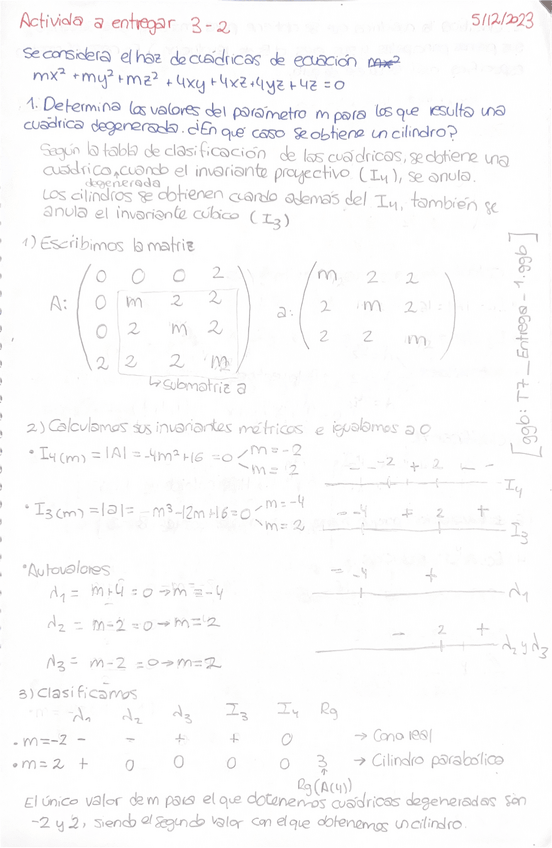 Actividad a entregar 3-2
5/12/2023
Se considera el haz de cuádricas de ecuación
mx² + my² + mz² + 4xy + 4xz + 4yz + 4z = 0
1. Determina los valores del parámetro m para los que resulta una
cuádrica degenerada. ¿En qué caso se obtiene un cilindro?
Según la tabla de clasificación de las cuádricas, se obtiene una
cuádrica degenerada, cuando el invariante proyectivo (I4), se anula.
Los cilindros se obtienen cuando además del I4, también se
anula el invariante cúbico (I3)
1) Escribimos la matriz
A: ( 0 0 0 2
0 m 2 2
0 2 m 2
2 2 2 m )
↳ Submatriz a
a: ( m 2 2
2 m 2
2 2 m )
[ggb: T7_Entrega-1.ggb]
2) Calculamos sus invariantes métricos e igualamos a 0
• I4(m) = |A| = -4m²+16 = 0 m = -2
m = 2
- -2 + 2 - - I4
• I3(m) = |a| = m³-12m+16 = 0 m = -4
m = 2
- -4 + 2 + I3
• Autovalores
λ1 = m+4 = 0 → m = -4
- -4 + λ1
λ2 = m-2 = 0 → m = 2
- 2 + λ2 y λ3
λ3 = m-2 = 0 → m = 2
3) Clasificamos
λ1 λ2 λ3 I3 I4 Rg
• m=-2 - - + + 0 → Cono real
• m=2 + 0 0 0 0 3 → Cilindro parabólico
Rg(A(4))
El único valor de m para el que obtenemos cuádricas degeneradas son
-2 y 2, siendo el segundo valor con el que obtenemos un cilindro.